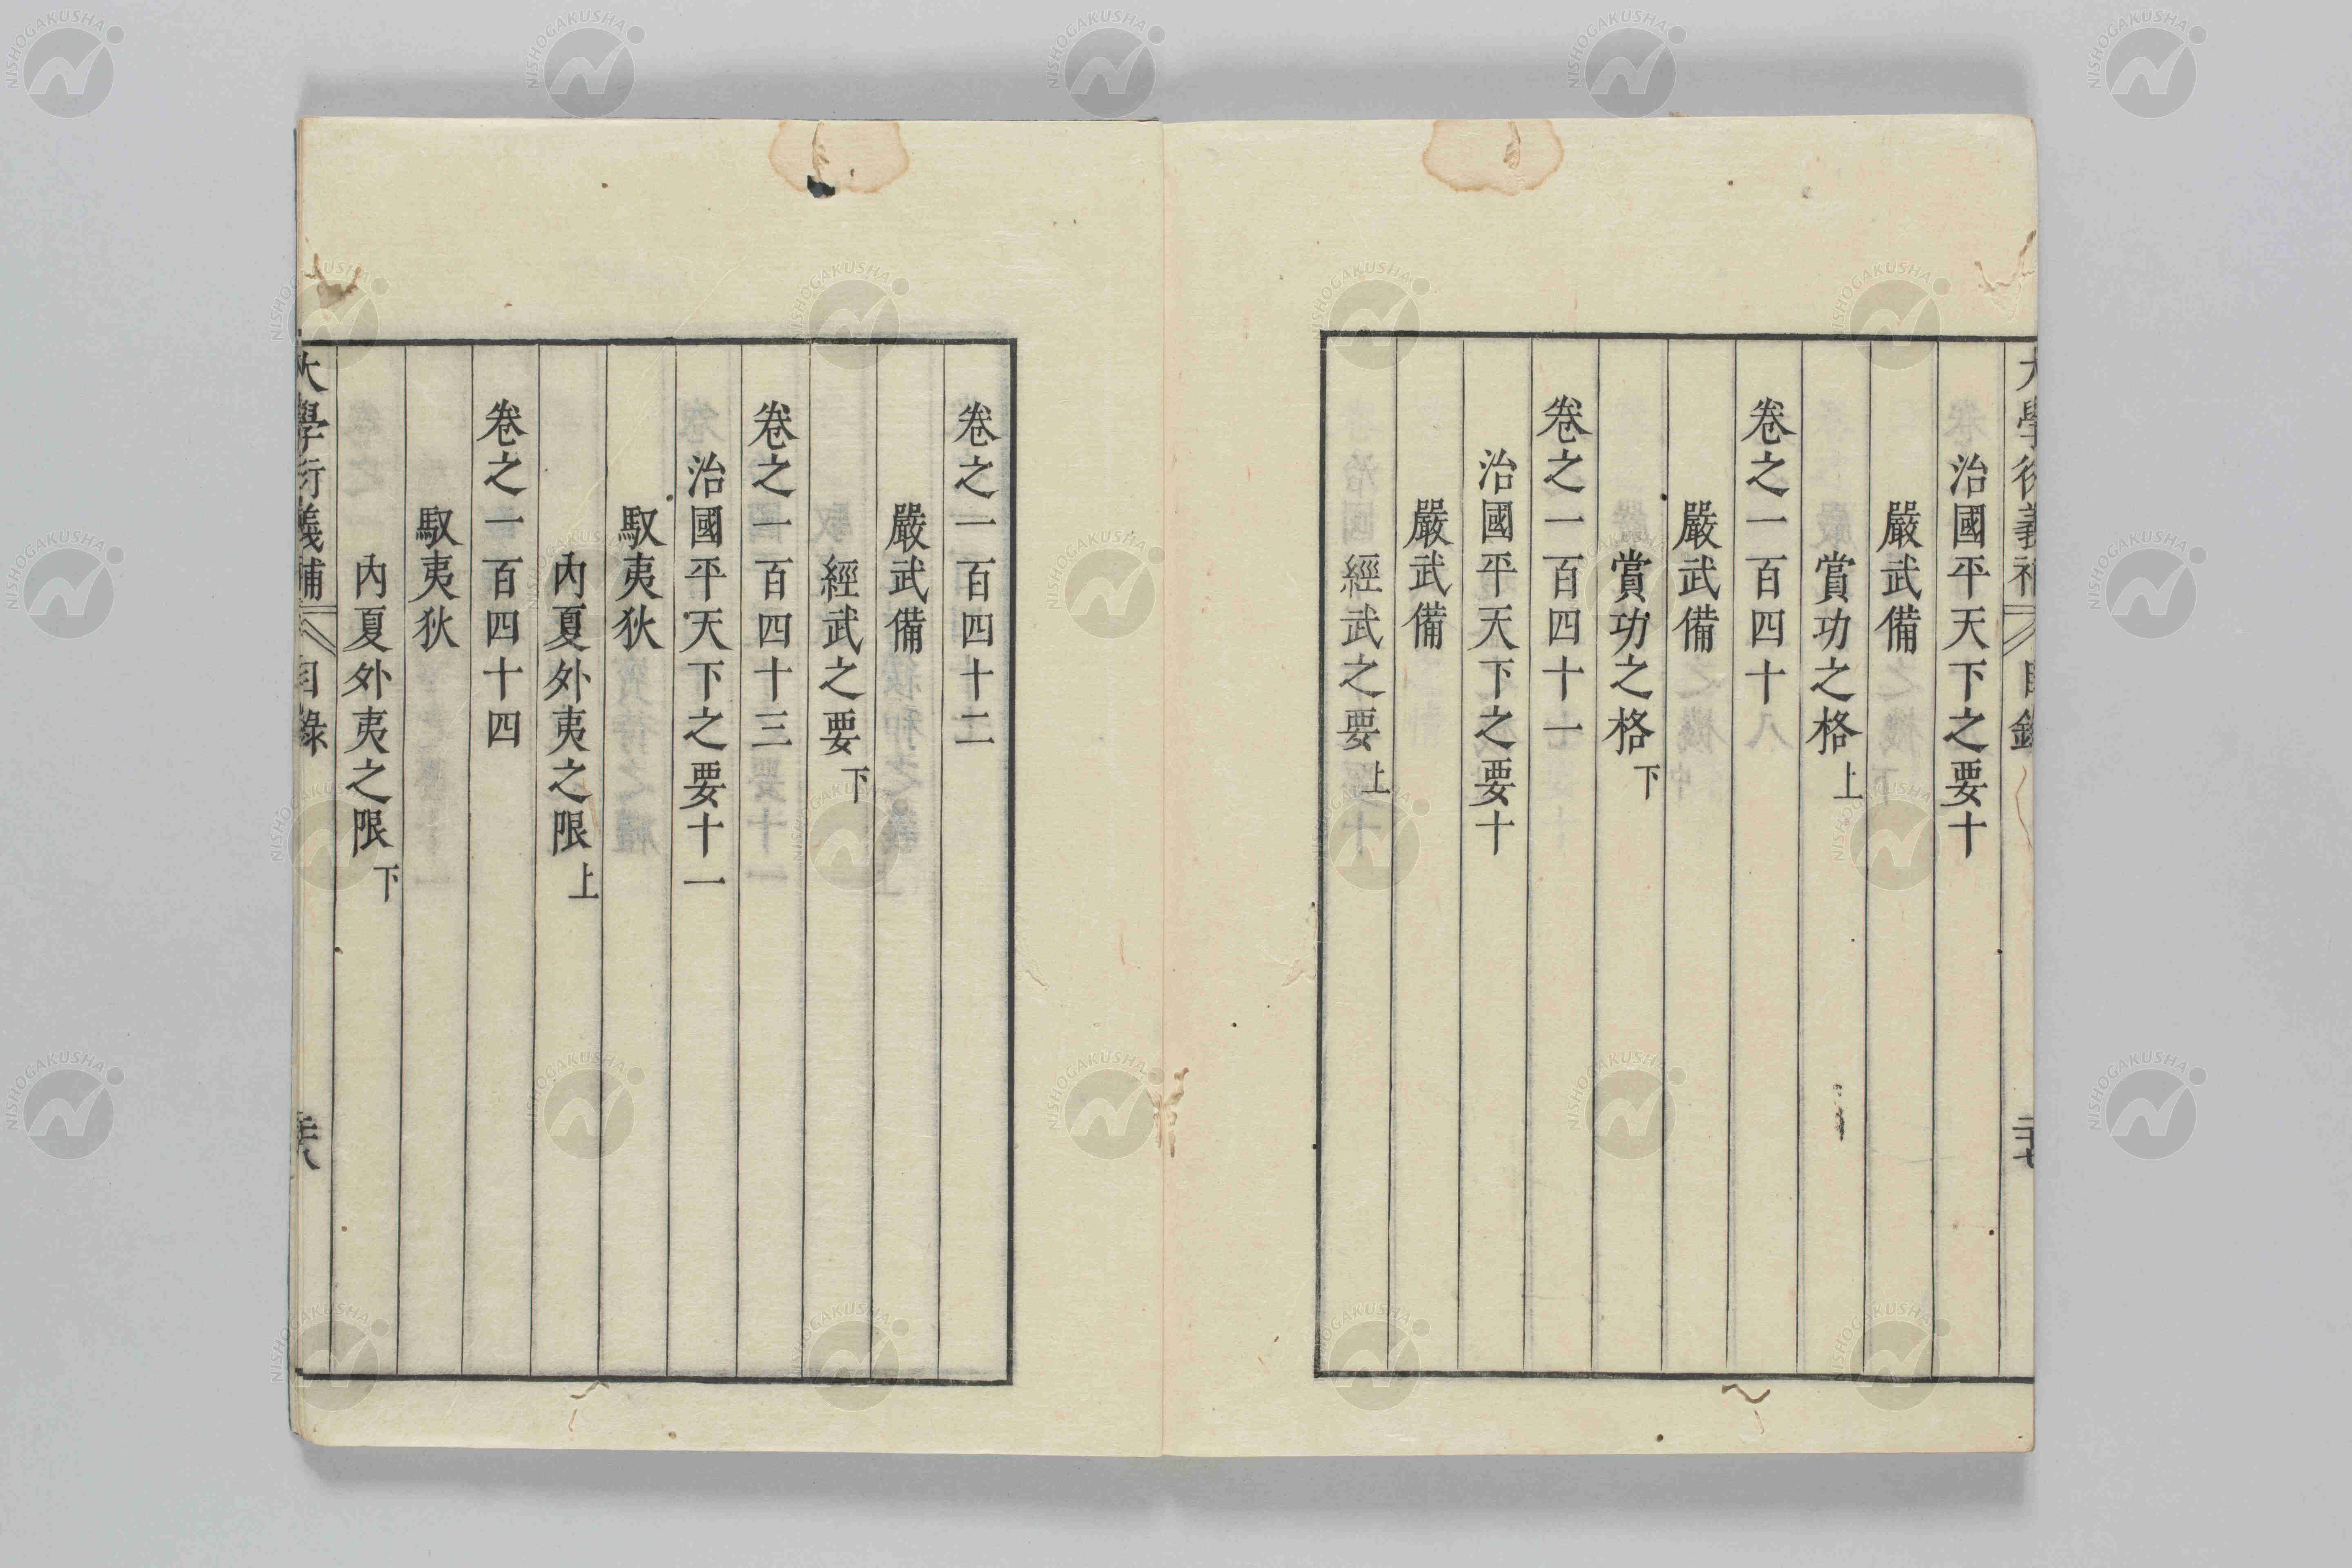 治國平天下之要十
嚴武備
賞功之格上
卷之一百四十
嚴武備
賞功之格下
卷之一百四十一
治國平天下之要十
嚴武備
經武之要上
卷之一百四十二
嚴武備
經武之要下
卷之一百四十三
治國平天下之要十一
馭夷狄
內夏外夷之限上
卷之一百四十四
馭夷狄
內夏外夷之限下
大學衍義補 目錄
NISHOGAKUSHA